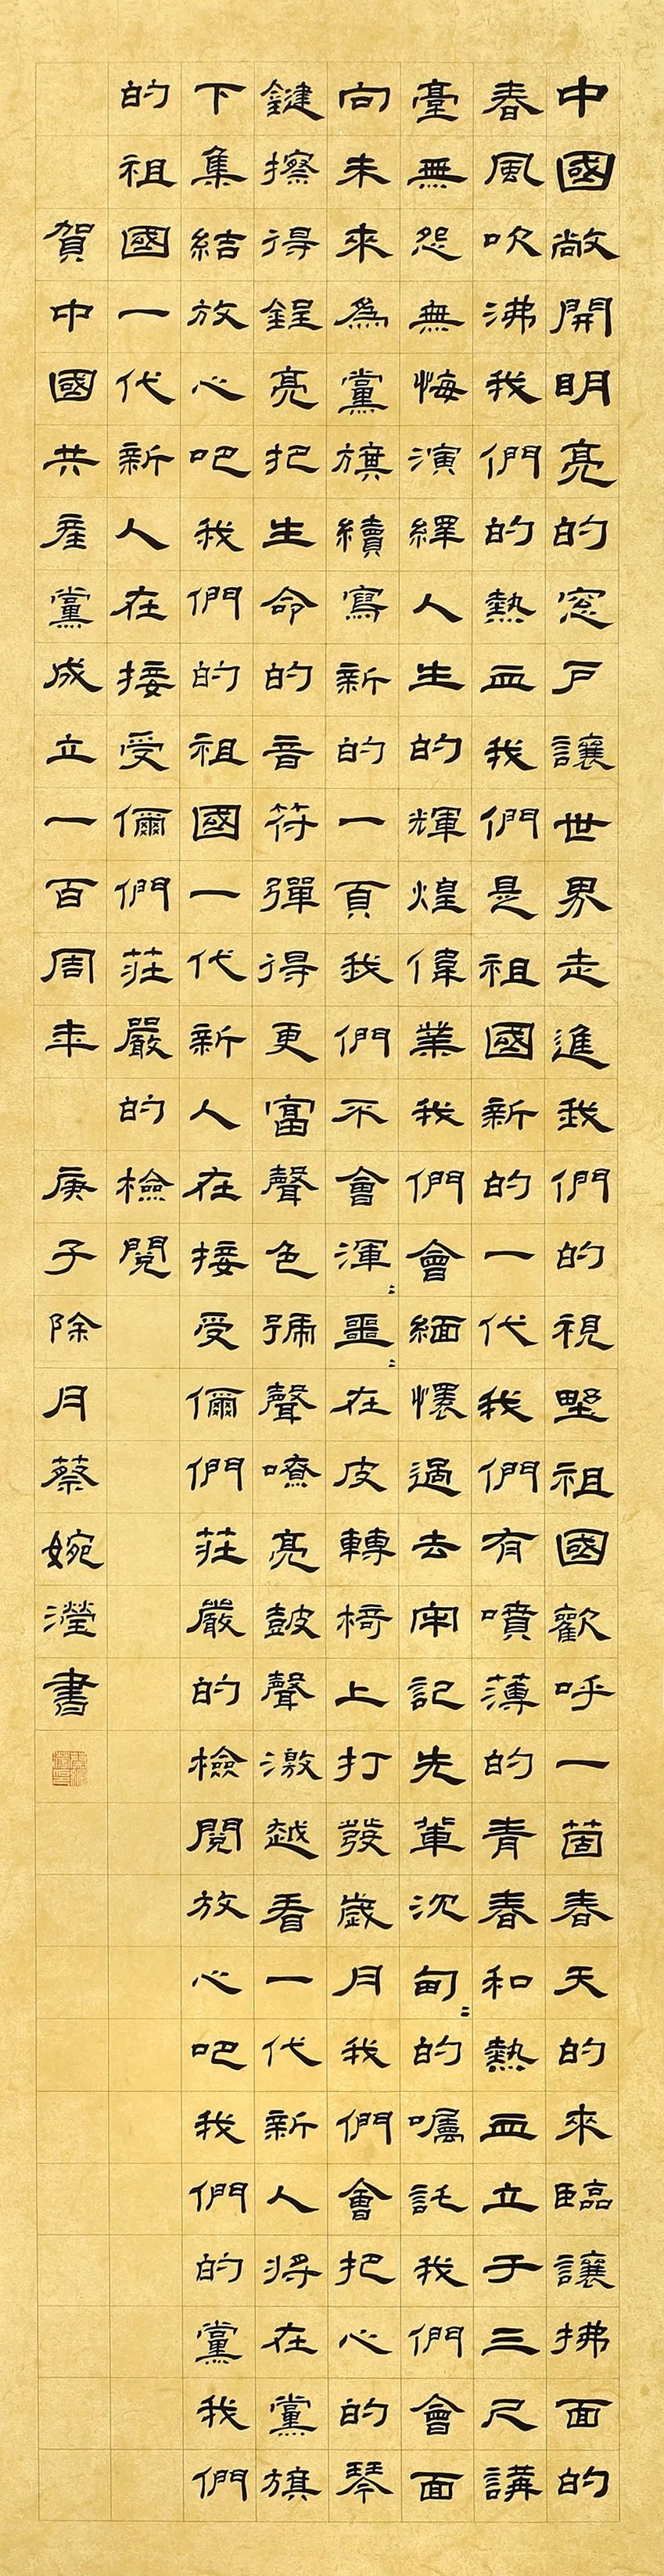 中國敞開明亮的窓戶讓世界走進我們的視野祖國歡呼一箇春天的來臨讓拂面的
春風吹沸我們的熱血我們是祖國新的一代我們有噴薄的青春和熱血立于三尺講
臺無怨無悔演繹人生的輝煌偉業我們會緬懷過去牢記先輩沉甸〻的囑託我們會面
向未來為黨旗續寫新的一頁我們不會渾〻噩〻在皮轉椅上打發歲月我們會把心的琴
鍵擦得鋥亮把生命的音符彈得更富聲色號聲嘹亮鼓聲激越看一代新人將在黨旗
下集結放心吧我們的祖國一代新人在接受你們莊嚴的檢閱放心吧我們的黨我們
的祖國一代新人在接受你們莊嚴的檢閱
賀中國共產黨成立一百周年 庚子除月蔡婉瀅書